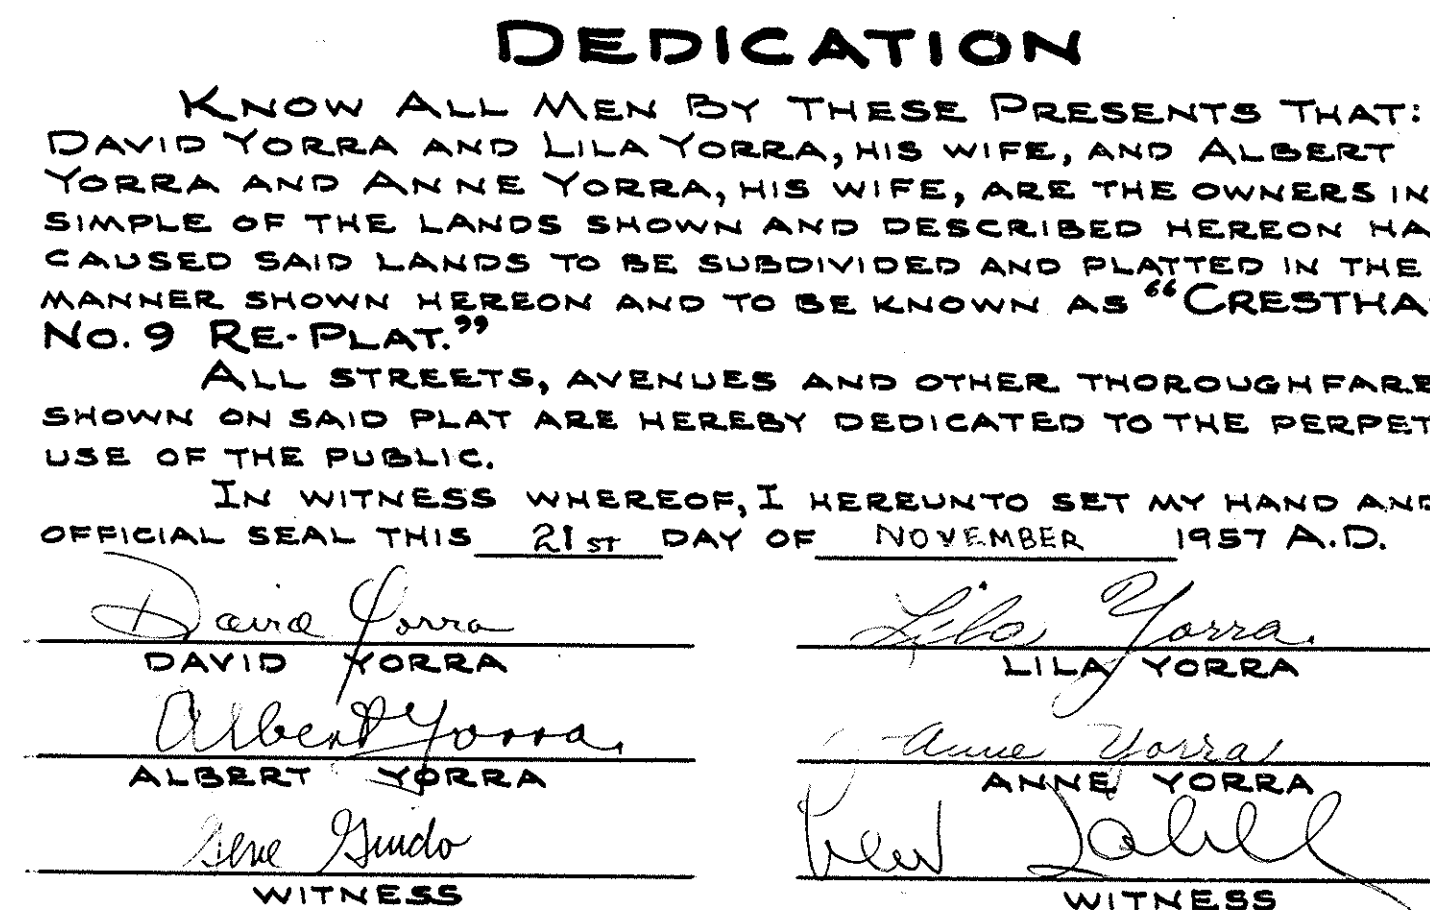 DEDICATION
KNOW ALL MEN BY THESE PRESENTS THAT:
DAVID YORRA AND LILA YORRA, HIS WIFE, AND ALBERT
YORRA AND ANNE YORRA, HIS WIFE, ARE THE OWNERS IN
SIMPLE OF THE LANDS SHOWN AND DESCRIBED HEREON HA
CAUSED SAID LANDS TO BE SUBDIVIDED AND PLATTED IN THE
MANNER SHOWN HEREON AND TO BE KNOWN AS "CRESTHA
NO. 9 RE-PLAT."
ALL STREETS, AVENUES AND OTHER THOROUGHFARE
SHOWN ON SAID PLAT ARE HEREBY DEDICATED TO THE PERPET
USE OF THE PUBLIC.
IN WITNESS WHEREOF, I HEREUNTO SET MY HAND AND
OFFICIAL SEAL THIS 21ST DAY OF NOVEMBER 1957 A.D.
David Yorra Lila Yorra
DAVID YORRA LILA YORRA
Albert Yorra Anne Yorra
ALBERT YORRA ANNE YORRA
Gene Guido
WITNESS WITNESS